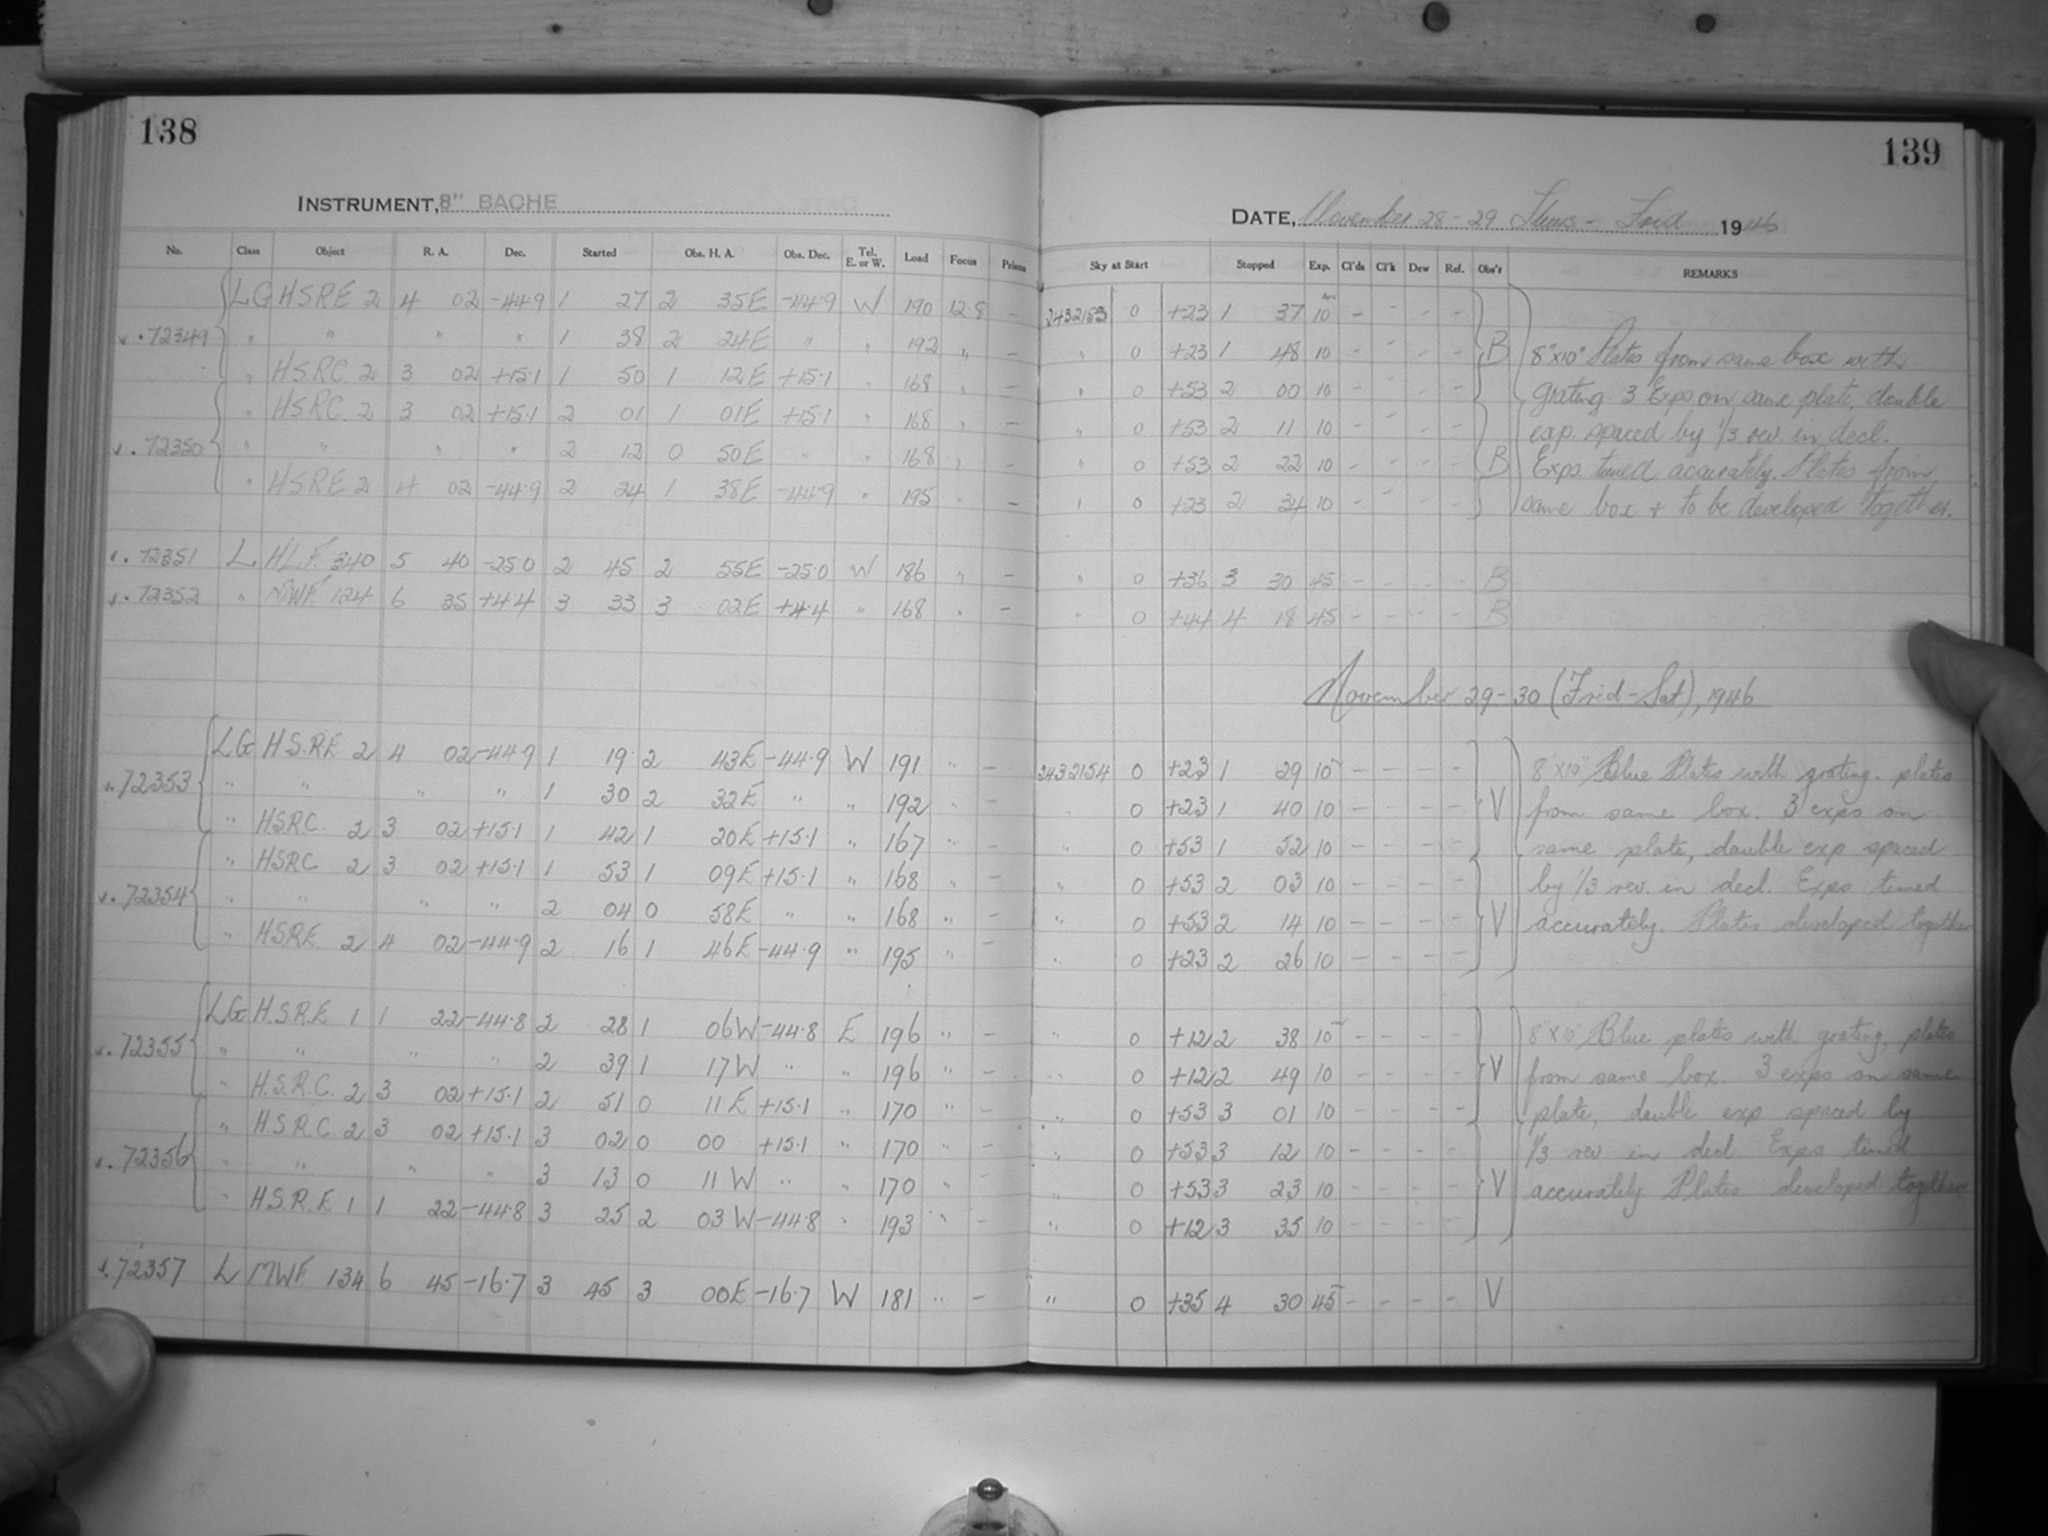 138
INSTRUMENT, 8" BACHE
No. Class Object R. A. Dec. Started Obs. H. A. Obs. Dec. Tel. E. or W. Load Focus Prism
LG HSRE 2 4 02 -44.9 1 27 2 35E -44.9 W 190 12.8 –
v. 72349 " " " " 1 38 2 24E " " 192 " –
" HSRC 2 3 02 +15.1 1 50 1 12E +15.1 " 168 " –
" HSRC. 2 3 02 +15.1 2 01 1 01E +15.1 " 168 " –
v. 72350 " " " " 2 12 0 50E " " 168 " –
" HSRE 2 4 02 -44.9 2 24 1 38E -44.9 " 195 " –
v. 72351 L HLF. 340 5 40 -25.0 2 45 2 55E -25.0 W 186 " –
v. 72352 " MWF. 124 6 35 +4.4 3 33 3 02E +4.4 " 168 " –
LG H.S.RE 2 4 02 -44.9 1 19 2 43E -44.9 W 191 " –
v. 72353 " " " " 1 30 2 32E " " 192 " –
" HSRC. 2 3 02 +15.1 1 42 1 20E +15.1 " 167 " –
" HSRC 2 3 02 +15.1 1 53 1 09E +15.1 " 168 " –
v. 72354 " " " " 2 04 0 58E " " 168 " –
" HSRE 2 4 02 -44.9 2 16 1 46E -44.9 " 195 " –
LG H.S.R.E 1 1 22 -44.8 2 28 1 06W -44.8 E 196 " –
v. 72355 " " " " 2 39 1 17W " " 196 " –
" H.S.R.C. 2 3 02 +15.1 2 51 0 11E +15.1 " 170 " –
" H.S.R.C. 2 3 02 +15.1 3 02 0 00 +15.1 " 170 " –
v. 72356 " " " " 3 13 0 11W " " 170 " –
" H.S.R.E 1 1 22 -44.8 3 25 2 03W -44.8 " 193 " –
v. 72357 L MWF 134 6 45 -16.7 3 45 3 00E -16.7 W 181 " –
139
DATE, November 28-29 Thurs - Frid. 1946
Sky at Start Stopped Exp. Cl'ds Cl'k Dew Ref. Obs'r REMARKS
2432153 0 +23 1 37 10 – – – –
" 0 +23 1 48 10 – – – – B 8"x10" Plates from same box with
" 0 +53 2 00 10 – – – – grating. 3 Exps on same plate, double
" 0 +53 2 11 10 – – – – exp. spaced by 1/3 rev. in decl.
" 0 +53 2 22 10 – – – – B Exps. timed accurately. Plates from
" 0 +23 2 34 10 – – – – same box + to be developed together.
" 0 +36 3 30 45 – – – – B
" 0 +44 4 18 45 – – – – B
November 29-30 (Frid-Sat), 1946
2432154 0 +23 1 29 10 – – – – 8"x10" Blue Plates with grating. plates
" 0 +23 1 40 10 – – – – V from same box. 3 exps on
" 0 +53 1 52 10 – – – – same plate, double exp spaced
" 0 +53 2 03 10 – – – – by 1/3 rev. in decl. Exps timed
" 0 +53 2 14 10 – – – – V accurately. Plates developed together
" 0 +23 2 26 10 – – – –
" 0 +12 2 38 10 – – – – 8"x10" Blue plates with grating, plates
" 0 +12 2 49 10 – – – – V from same box. 3 exps on same
" 0 +53 3 01 10 – – – – plate, double exp spaced by
" 0 +53 3 12 10 – – – – 1/3 rev in decl Exps timed
" 0 +53 3 23 10 – – – – V accurately Plates developed together
" 0 +12 3 35 10 – – – –
" 0 +35 4 30 45 – – – – V